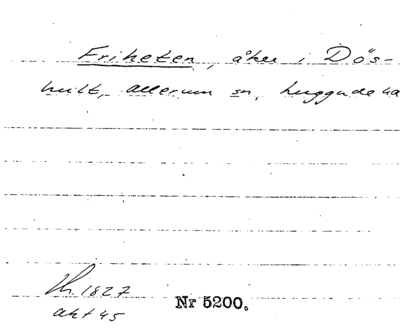 Friheten, åker i Dös-
hult, allerum sn, Luggude hd
Lh. 1827
akt 45
Nr 5200.